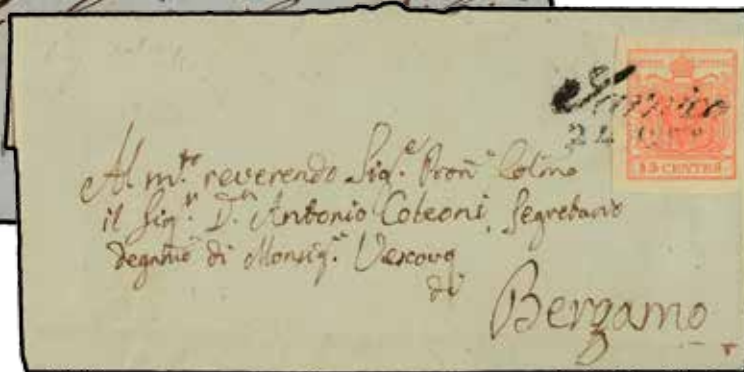 Sarnico
24
15 CENTES
Al m.to reverendo Sig.e Pron.e Colmo
il Sig.r D.n Antonio Coleoni, Segretario
degnmo di Monsig.r Vescovo
di
Bergamo